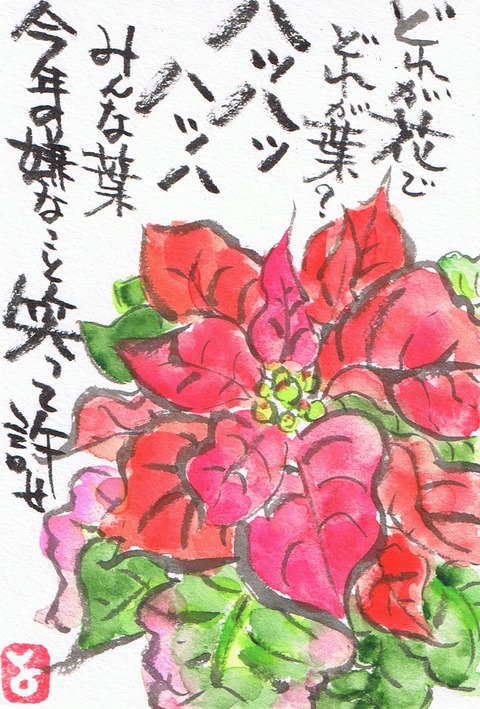 どれが花で
どれが葉？
ハッハッ
ハッハ
みんな葉
今年の嫌なこと笑って許せ